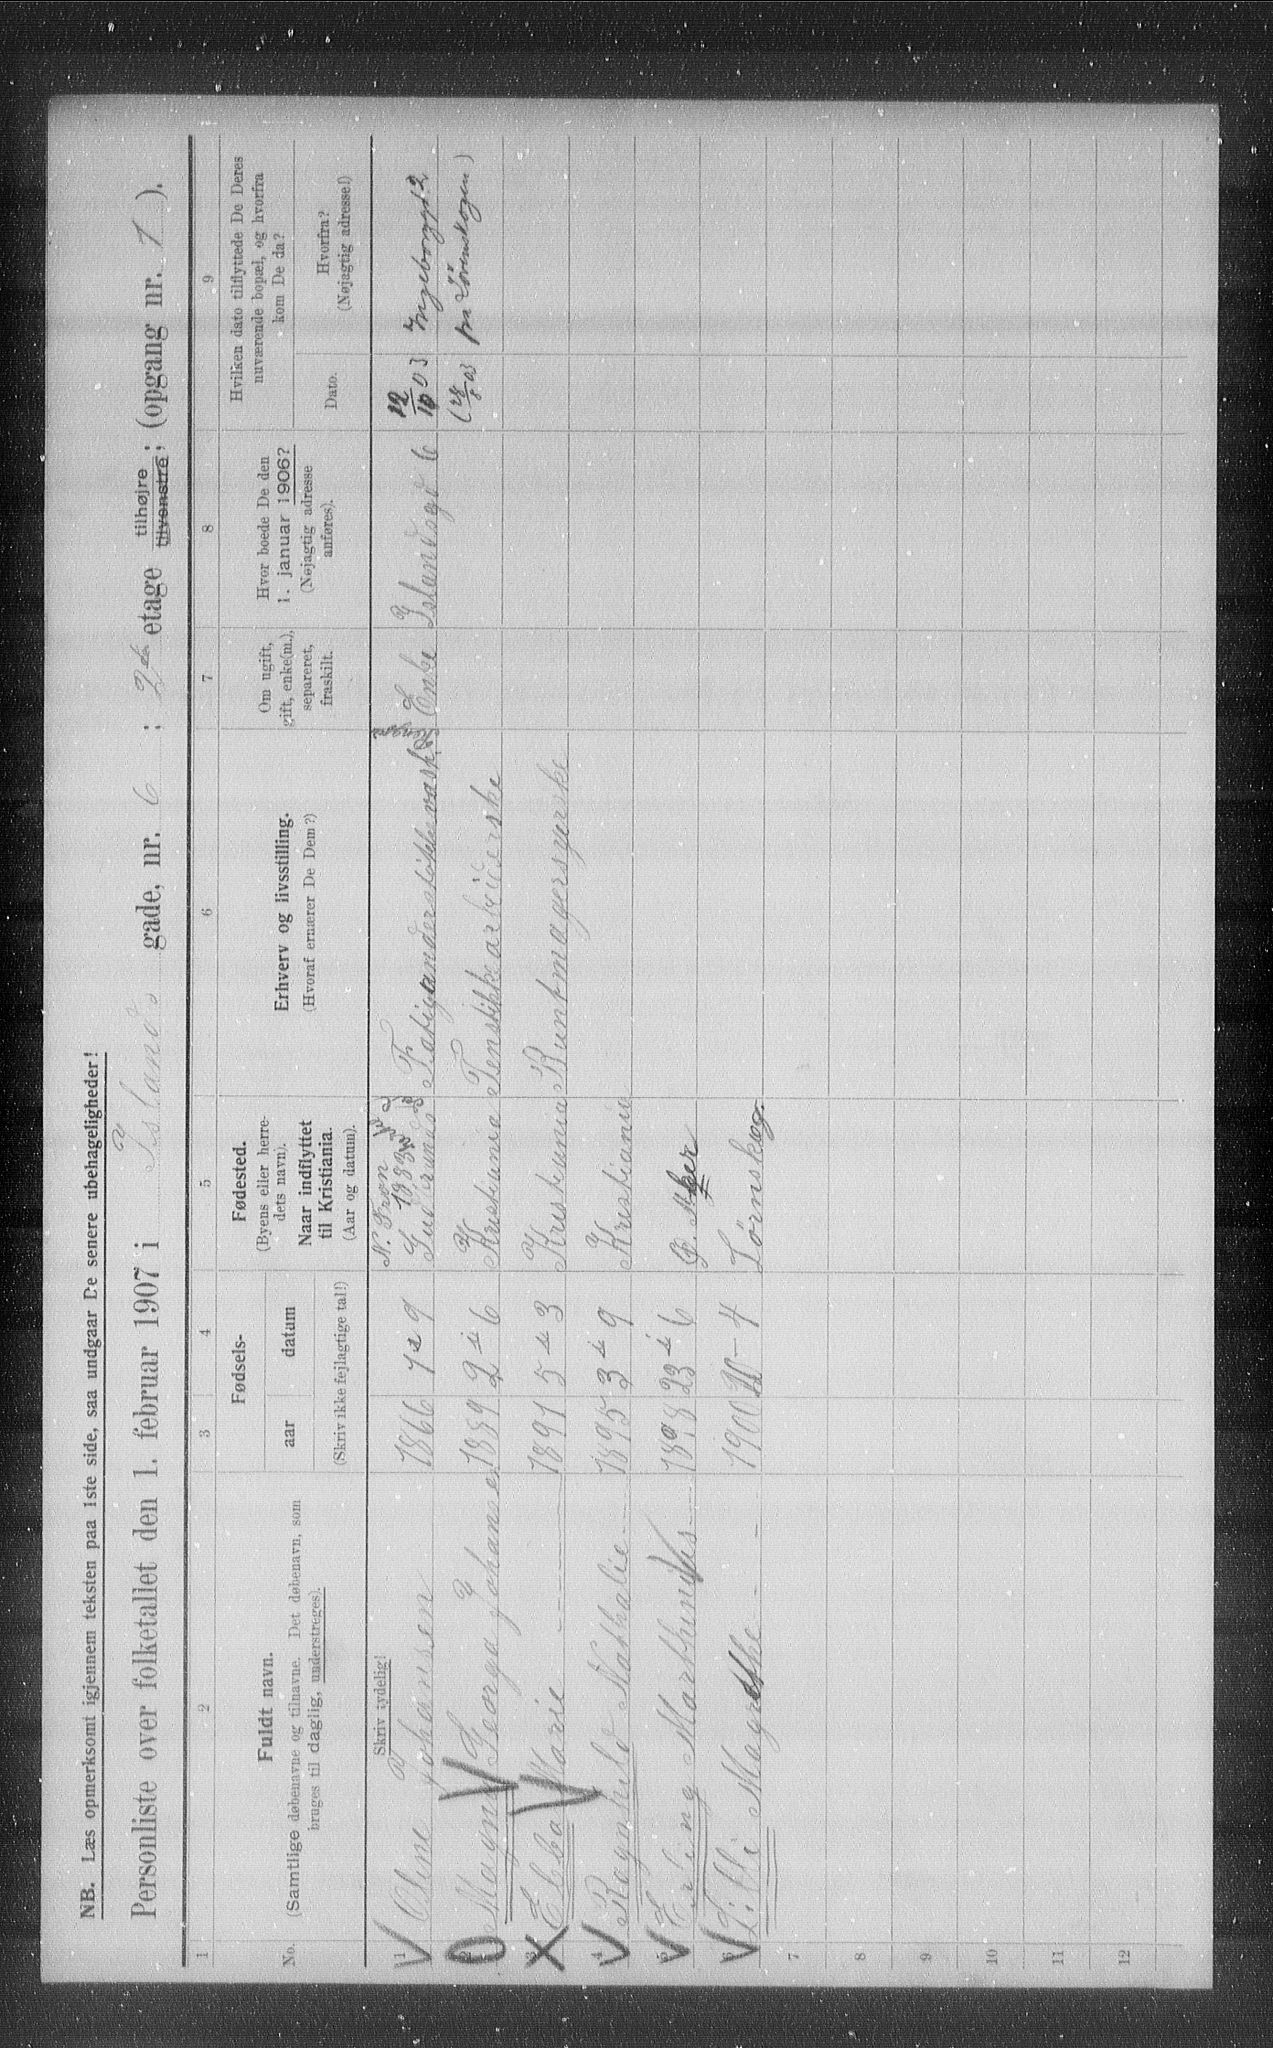 NB. Læs opmerksomt igjennem teksten paa 1ste side, saa undgaar De senere ubehageligheder!
Personliste over folketallet den 1. februar 1907 i Islands gade, nr. 6 ; 2den etage tilhøjre ; tilvenstre ; (opgang nr. 1 ).
1 2 3 4 5 6 7 8 9
No.
Fuldt navn.
(Samtlige døbenavne og tilnavne. Det døbenavn, som
bruges til daglig, understreges).
Fødsels-
aar
datum
(Skriv ikke fejlagtige tal!)
Fødested.
(Byens eller herre-
dets navn).
Naar indflyttet
til Kristiania.
(Aar og datum).
Erhverv og livsstilling.
(Hvoraf ernærer De Dem?)
Om ugift,
gift, enke(m.),
separeret,
fraskilt.
Hvor boede De den
1. januar 1906?
(Nøjagtig adresse
anføres).
Hvilken dato tilflyttede De Deres
nuværende bopæl, og hvorfra
kom De da?
Dato.
Hvorfra?
(Nøjagtig adresse!)
Skriv tydelig!
N. Fron
1 Oline Johansen 1866 9 Enke Islandsgd 6 10 03 Ingeborggt 2
2 Magna Georga Johansen 1889 2 6 Kristiania Fenstikkarbeiderske
3 Ebba Marie 1891 5 3 Kristiania Buntmagersyerske
4 Ragnhild Nathalie 1895 3 9 Kristiania
5 Erling Marthinius 1898 23 6 Ø. Aker
6 Lilli Magrethe 1900 - 4 Lørnskog
7
8
9
10
11
12